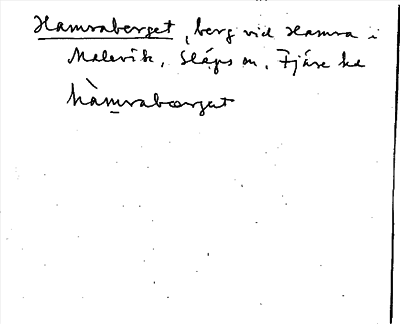 Hamraberget, berg vid Hamra i
Malevik, Släps sn, Fjäre hd
hàmrabærget